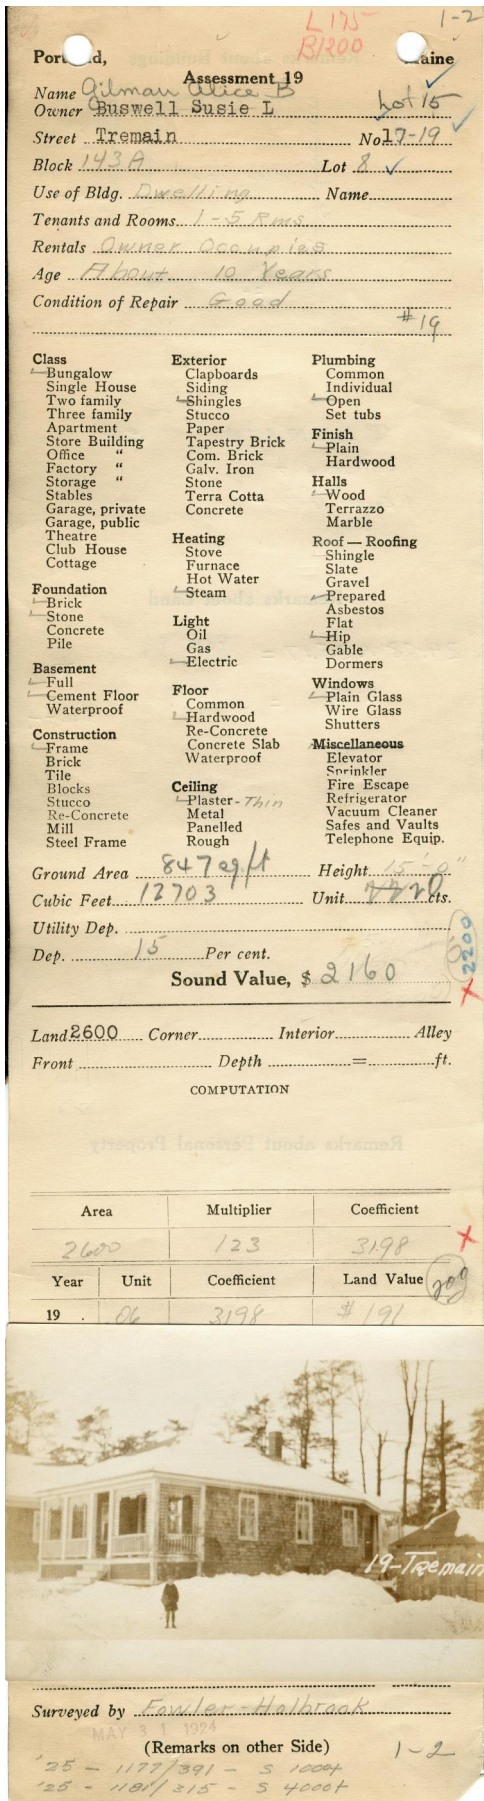 L 175
B1200
1-2
Portland, Maine
Assessment 19
Name Gilman Alice B
Owner Buswell Susie L Lot 15
Street Tremain No 17-19
Block 143A Lot 8
Use of Bldg. Dwelling Name
Tenants and Rooms 1-5 Rms
Rentals Owner Occupies
Age About 10 Years
Condition of Repair Good
#19
Class
Bungalow
Single House
Two family
Three family
Apartment
Store Building
Office "
Factory "
Storage "
Stables
Garage, private
Garage, public
Theatre
Club House
Cottage
Foundation
Brick
Stone
Concrete
Pile
Basement
Full
Cement Floor
Waterproof
Construction
Frame
Brick
Tile
Blocks
Stucco
Re-Concrete
Mill
Steel Frame
Exterior
Clapboards
Siding
Shingles
Stucco
Paper
Tapestry Brick
Com. Brick
Galv. Iron
Stone
Terra Cotta
Concrete
Heating
Stove
Furnace
Hot Water
Steam
Light
Oil
Gas
Electric
Floor
Common
Hardwood
Re-Concrete
Concrete Slab
Waterproof
Ceiling
Plaster - Thin
Metal
Panelled
Rough
Plumbing
Common
Individual
Open
Set tubs
Finish
Plain
Hardwood
Halls
Wood
Terrazzo
Marble
Roof — Roofing
Shingle
Slate
Gravel
Prepared
Asbestos
Flat
Hip
Gable
Dormers
Windows
Plain Glass
Wire Glass
Shutters
Miscellaneous
Elevator
Sprinkler
Fire Escape
Refrigerator
Vacuum Cleaner
Safes and Vaults
Telephone Equip.
Ground Area 847 sq ft Height 15'-0"
Cubic Feet 12703 Unit cts.
Utility Dep.
Dep. 15 Per cent.
2200
Sound Value, $ 2160
Land 2600 Corner Interior Alley
Front Depth = ft.
COMPUTATION
Area Multiplier Coefficient
2600 123 3198
Year Unit Coefficient Land Value
200
19 . 06 3198 $ 191
19-Tremain
Surveyed by Fowler-Holbrook
MAY 31 1924
(Remarks on other Side)
1-2
'25 - 1177/391 - S 100+
'25 - 1181/315 - S 4000+